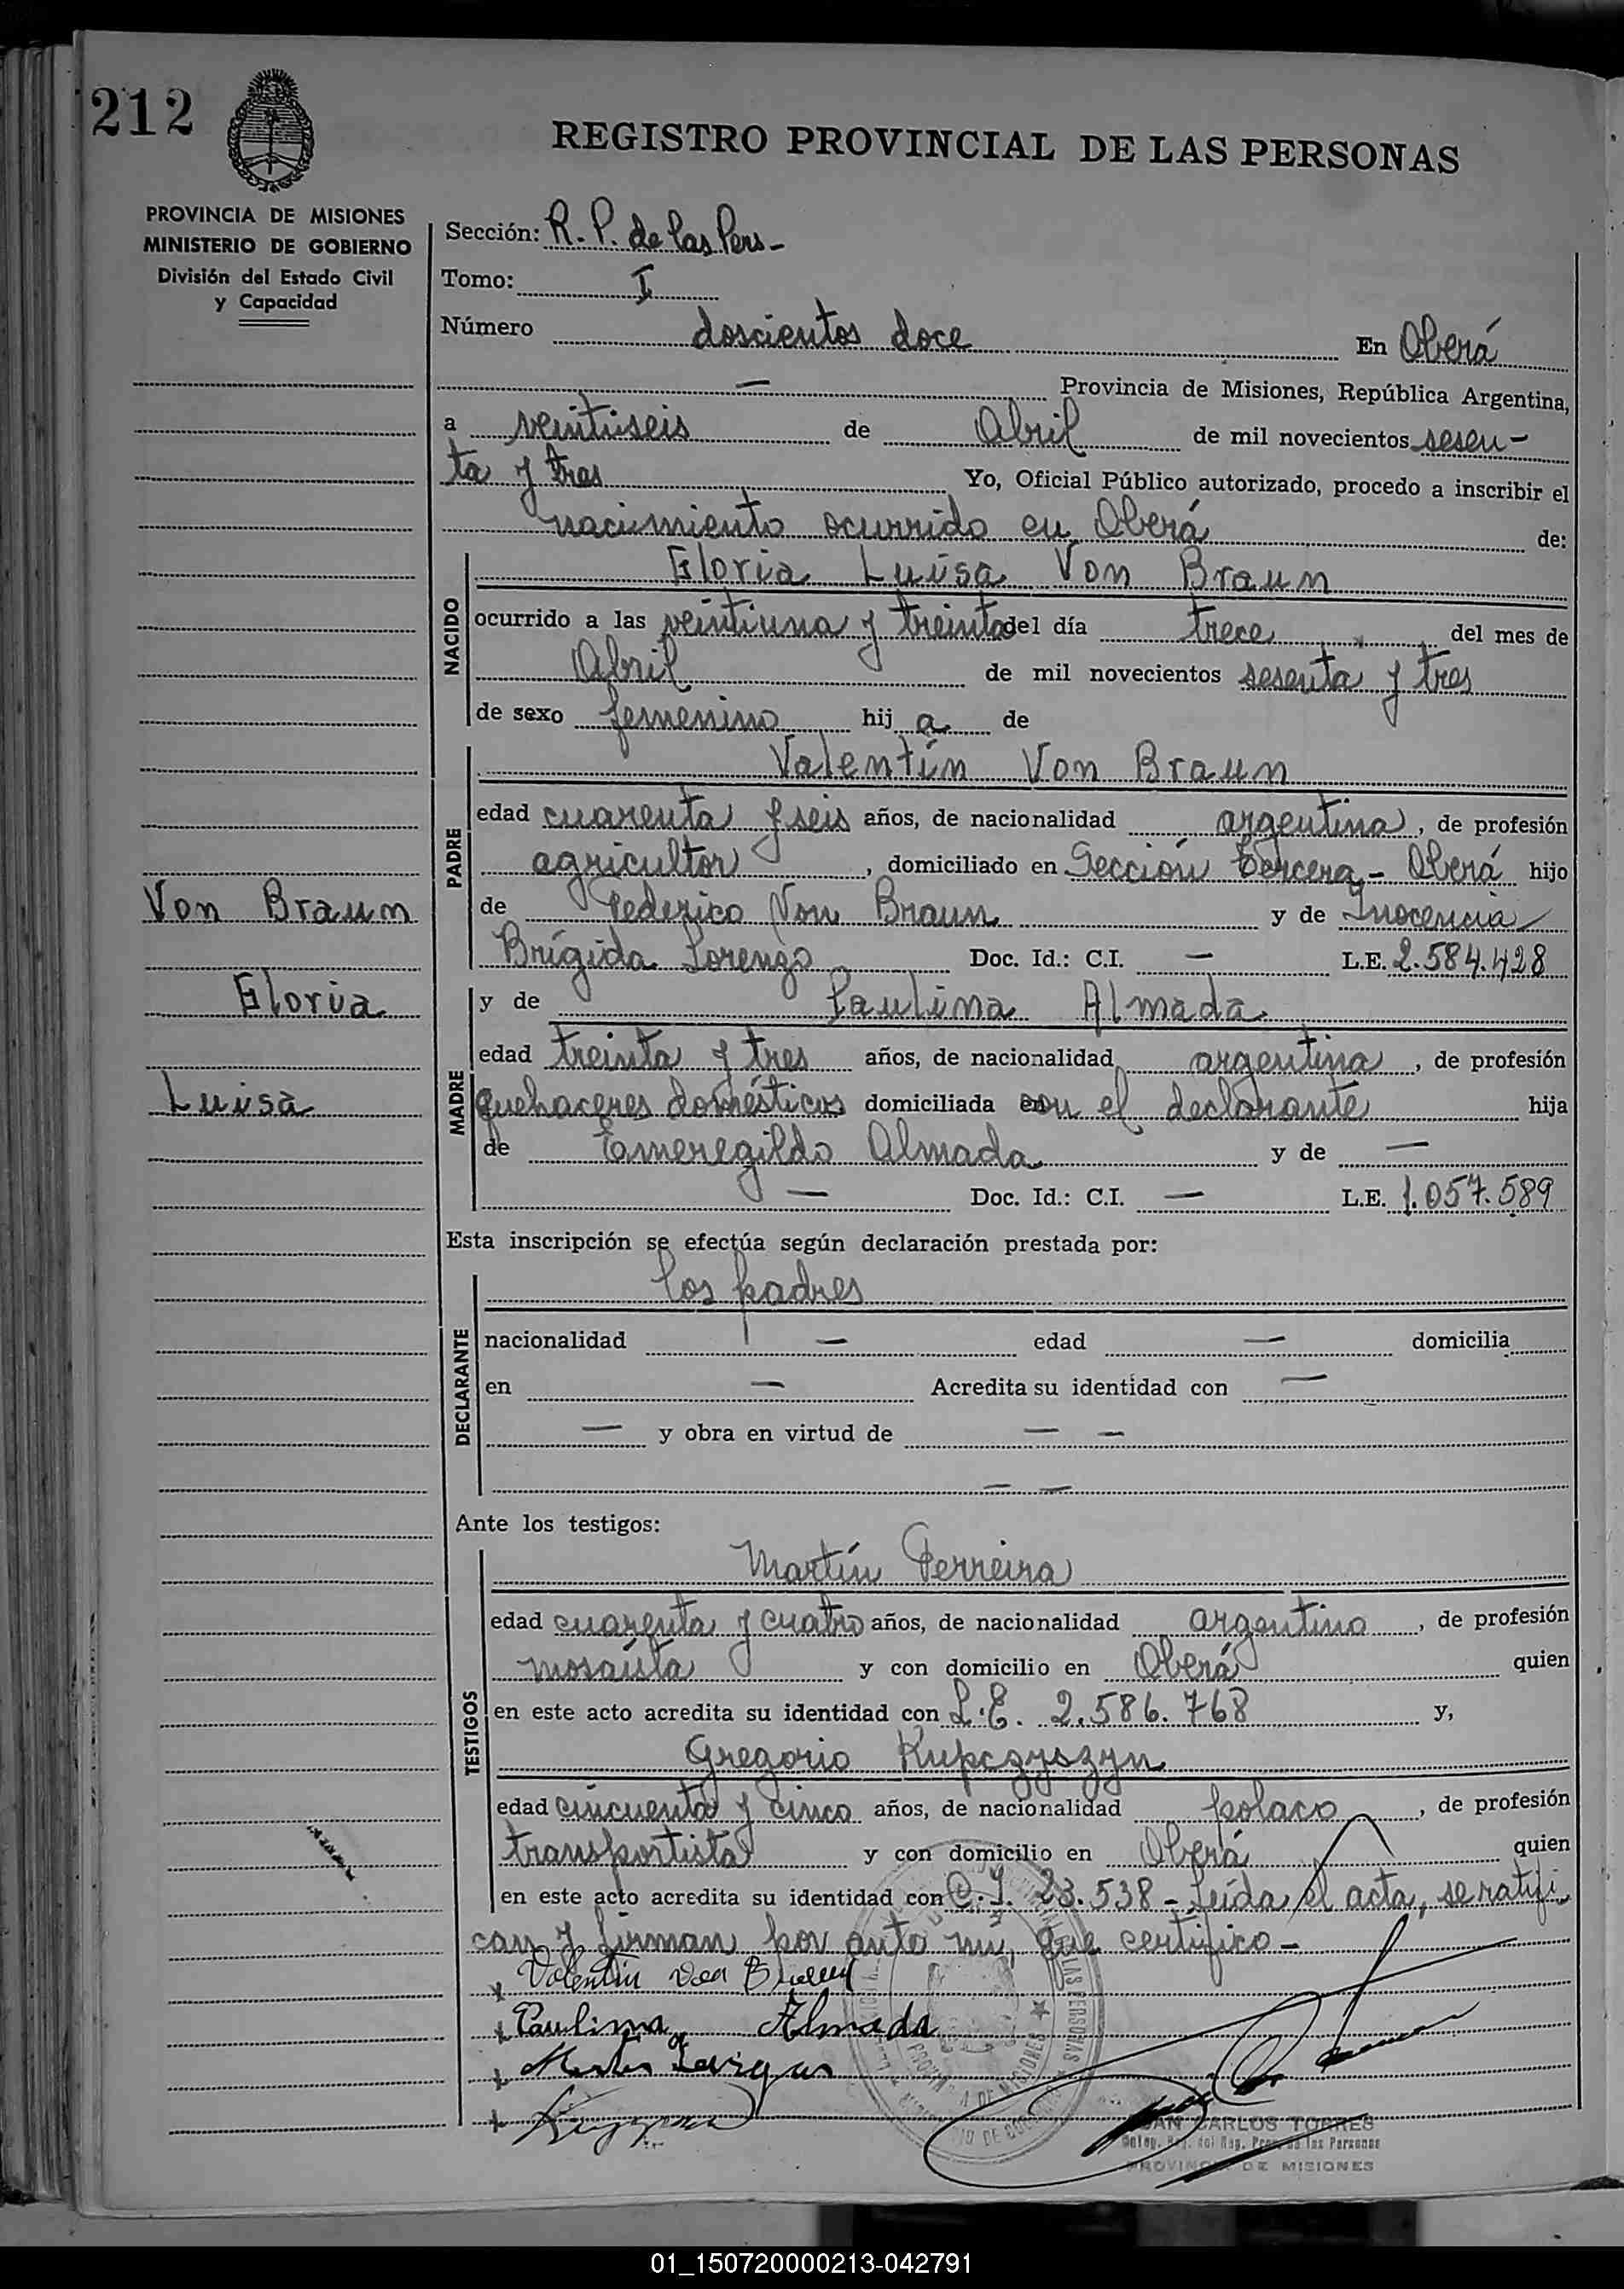 212
REGISTRO PROVINCIAL DE LAS PERSONAS
PROVINCIA DE MISIONES
MINISTERIO DE GOBIERNO
División del Estado Civil
y Capacidad
Sección: R. P. de las Pers -
Tomo: I
Número doscientos doce En Oberá
— Provincia de Misiones, República Argentina,
a veintiseis de Abril de mil novecientos sesen-
ta y tres Yo, Oficial Público autorizado, procedo a inscribir el
nacimiento ocurrido en Oberá de:
NACIDO
Gloria Luisa Von Braun
ocurrido a las veintiuna y treinta del día trece del mes de
Abril de mil novecientos sesenta y tres
de sexo femenino hij a de
PADRE
Valentín Von Braun
edad cuarenta y seis años, de nacionalidad argentina, de profesión
agricultor, domiciliado en Sección tercera - Oberá hijo
de Federico Von Braun y de Inocencia
Brígida Lorenzo Doc. Id.: C.I. — L.E. 2.584.428
MADRE
y de Paulina Almada
edad treinta y tres años, de nacionalidad argentina, de profesión
quehaceres domésticos domiciliada con el declarante hija
de Emeregildo Almada y de —
— Doc. Id.: C.I. — L.E. 1.057.589
Von Braun
Gloria
Luisa
Esta inscripción se efectúa según declaración prestada por:
DECLARANTE
los padres
nacionalidad — edad — domicilia
en — Acredita su identidad con —
— y obra en virtud de — —
— —
Ante los testigos:
TESTIGOS
Martín Ferreira
edad cuarenta y cuatro años, de nacionalidad argentino, de profesión
mosaísta y con domicilio en Oberá quien
en este acto acredita su identidad con L.E. 2.586.768 y,
Gregorio Kupczyszyn
edad cincuenta y cinco años, de nacionalidad polaco, de profesión
transportista y con domicilio en Oberá quien
en este acto acredita su identidad con C.I. 23.538 - Leída el acta, se ratifi
can y firman por ante mí, que certifico -
x Valentin Von Braun
x Paulina Almada
x
x
JUAN CARLOS TORRES
Deleg. del Reg. Prov. de las Personas
PROVINCIA DE MISIONES
01_150720000213-042791